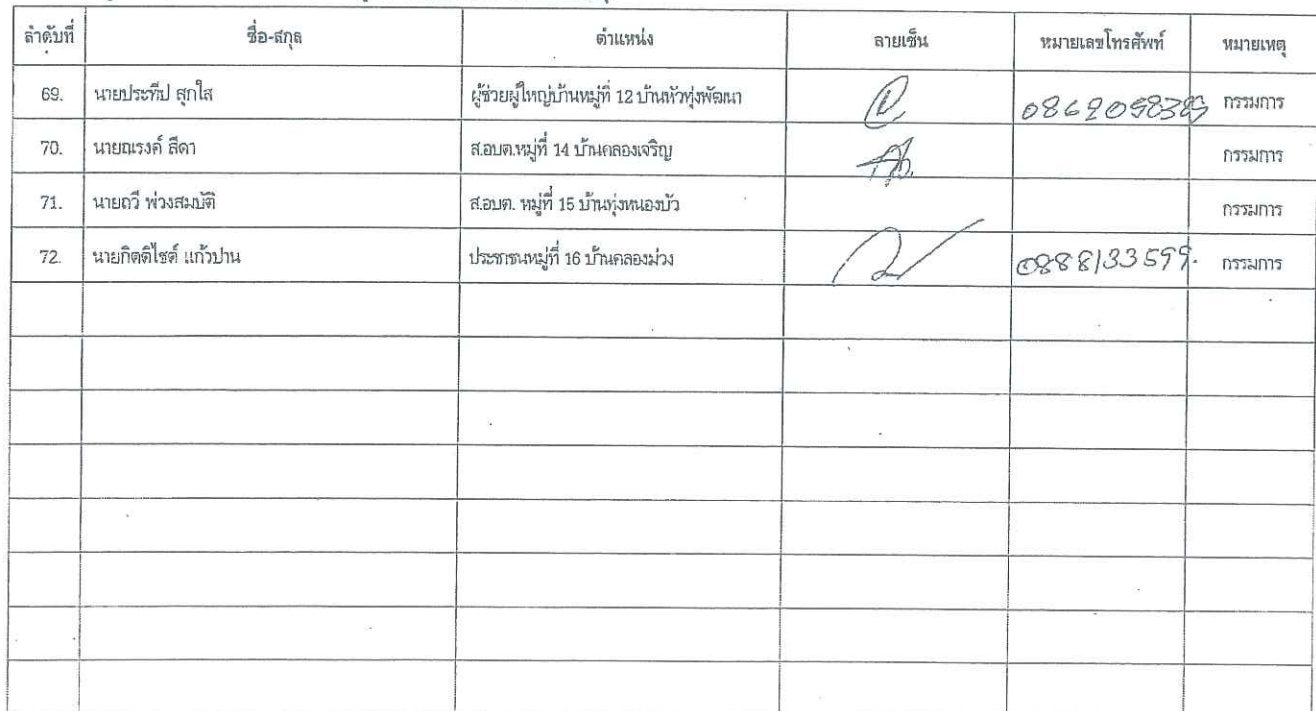 ลำดับที่ ชื่อ-สกุล ตำแหน่ง ลายเซ็น หมายเลขโทรศัพท์ หมายเหตุ
69. นายประทีป สุกใส ผู้ช่วยผู้ใหญ่บ้านหมู่ที่ 12 บ้านหัวทุ่งพัฒนา กรรมการ
70. นายณรงค์ สีดา ส.อบต.หมู่ที่ 14 บ้านคลองเจริญ กรรมการ
71. นายถวี พ่วงสมบัติ ส.อบต. หมู่ที่ 15 บ้านทุ่งหนองบัว กรรมการ
72. นายกิตติไชต์ แก้วปาน ประชาชนหมู่ที่ 16 บ้านคลองม่วง 0888133599. กรรมการ